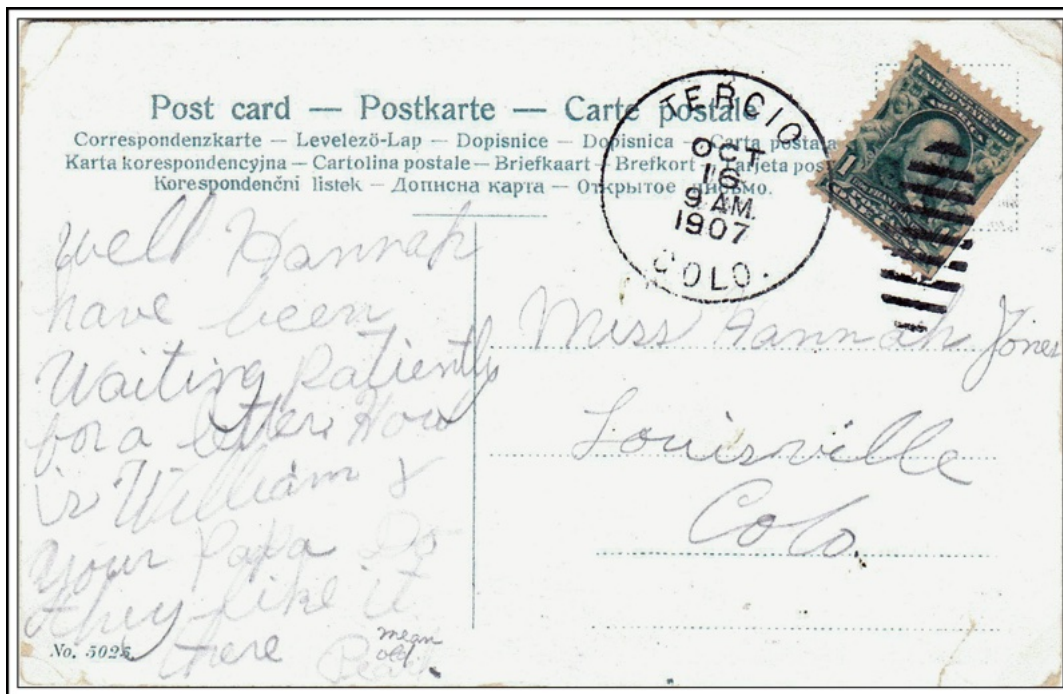 Post card — Postkarte — Carte postale
Correspondenzkarte — Levelező-Lap — Dopisnice — Dopisnica — Carta postala
Karta korespondencyjna — Cartolina postale — Briefkaart — Brefkort — Tarjeta pos
Korespondenční listek — Дописна карта — Открытое письмо.
TERCIO
OCT
16
9 AM.
1907
COLO.
UNITED STATES OF
AMERICA
1
Well Hannah
have been
Waiting Patiently
for a letter. How
is William &
your Papa Do
they like it
there
mean
old
Pearl
Miss Hannah Jones
Louisville
Colo.
No. 5025.